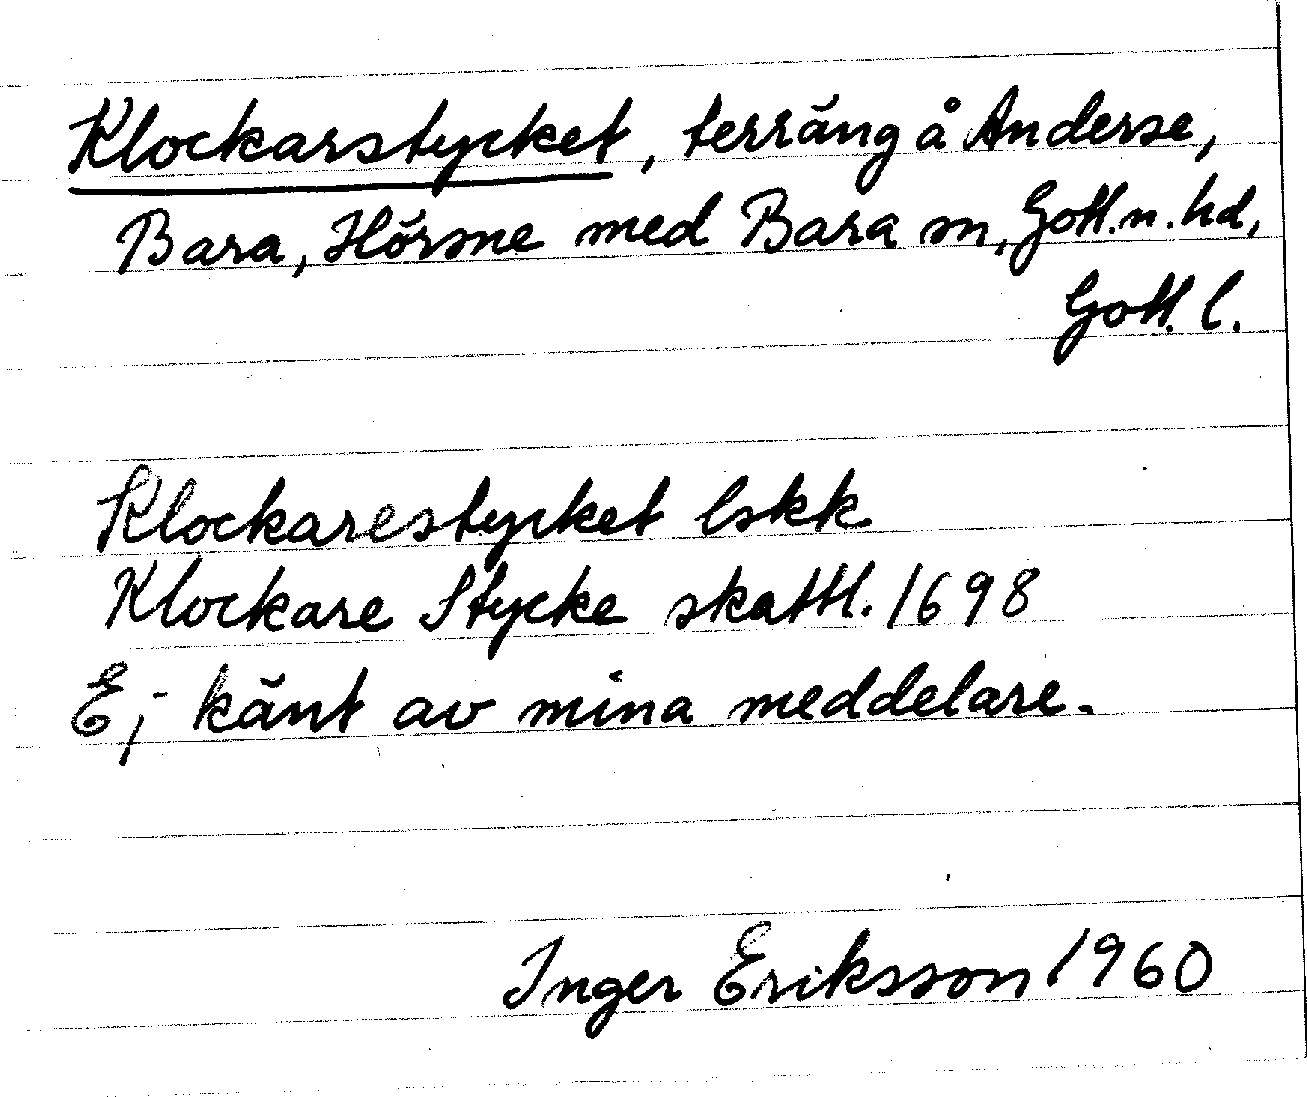 Klockarstycket, terräng å Anderse,
Bara, Hörsne med Bara sn, Gotl. n. hd,
Gotl. l.
Klockarestycket lskk.
Klockare Stycke skattl. 1698
Ej känt av mina meddelare.
Inger Eriksson 1960